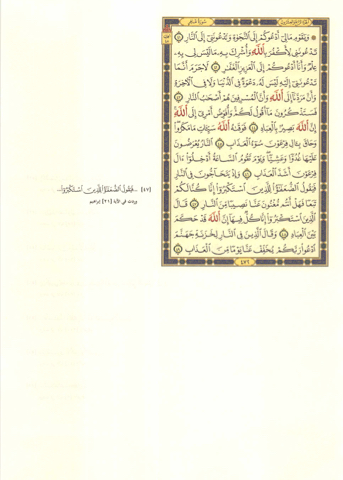 سورة غافر
۞ وَيَٰقَوْمِ مَا لِىٓ أَدْعُوكُمْ إِلَى ٱلنَّجَوٰةِ وَتَدْعُونَنِىٓ إِلَى ٱلنَّارِ ٤١
تَدْعُونَنِى لِأَكْفُرَ بِٱللَّهِ وَأُشْرِكَ بِهِۦ مَا لَيْسَ لِى بِهِۦ
عِلْمٌ وَأَنَا۠ أَدْعُوكُمْ إِلَى ٱلْعَزِيزِ ٱلْغَفَّٰرِ ٤٢ لَا جَرَمَ أَنَّمَا
تَدْعُونَنِىٓ إِلَيْهِ لَيْسَ لَهُۥ دَعْوَةٌ فِى ٱلدُّنْيَا وَلَا فِى ٱلْءَاخِرَةِ
وَأَنَّ مَرَدَّنَآ إِلَى ٱللَّهِ وَأَنَّ ٱلْمُسْرِفِينَ هُمْ أَصْحَٰبُ ٱلنَّارِ ٤٣
فَسَتَذْكُرُونَ مَآ أَقُولُ لَكُمْ وَأُفَوِّضُ أَمْرِىٓ إِلَى ٱللَّهِ
إِنَّ ٱللَّهَ بَصِيرٌۢ بِٱلْعِبَادِ ٤٤ فَوَقَىٰهُ ٱللَّهُ سَيِّـَٔاتِ مَا مَكَرُوا۟
وَحَاقَ بِـَٔالِ فِرْعَوْنَ سُوٓءُ ٱلْعَذَابِ ٤٥ ٱلنَّارُ يُعْرَضُونَ
عَلَيْهَا غُدُوًّا وَعَشِيًّا وَيَوْمَ تَقُومُ ٱلسَّاعَةُ أَدْخِلُوٓا۟ ءَالَ
فِرْعَوْنَ أَشَدَّ ٱلْعَذَابِ ٤٦ وَإِذْ يَتَحَآجُّونَ فِى ٱلنَّارِ
فَيَقُولُ ٱلضُّعَفَٰٓؤُا۟ لِلَّذِينَ ٱسْتَكْبَرُوٓا۟ إِنَّا كُنَّا لَكُمْ
تَبَعًا فَهَلْ أَنتُم مُّغْنُونَ عَنَّا نَصِيبًا مِّنَ ٱلنَّارِ ٤٧ قَالَ
ٱلَّذِينَ ٱسْتَكْبَرُوٓا۟ إِنَّا كُلٌّ فِيهَآ إِنَّ ٱللَّهَ قَدْ حَكَمَ
بَيْنَ ٱلْعِبَادِ ٤٨ وَقَالَ ٱلَّذِينَ فِى ٱلنَّارِ لِخَزَنَةِ جَهَنَّمَ
ٱدْعُوا۟ رَبَّكُمْ يُخَفِّفْ عَنَّا يَوْمًا مِّنَ ٱلْعَذَابِ ٤٩
٤٧٢
[٤٧] ... فَيَقُولُ ٱلضُّعَفَٰٓؤُا۟ لِلَّذِينَ ٱسْتَكْبَرُوٓا۟...
وردت في الآية [٢١] إبراهيم